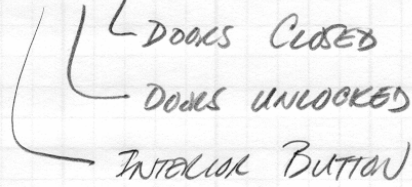 DOORS CLOSED
DOORS UNLOCKED
INTERIOR BUTTON